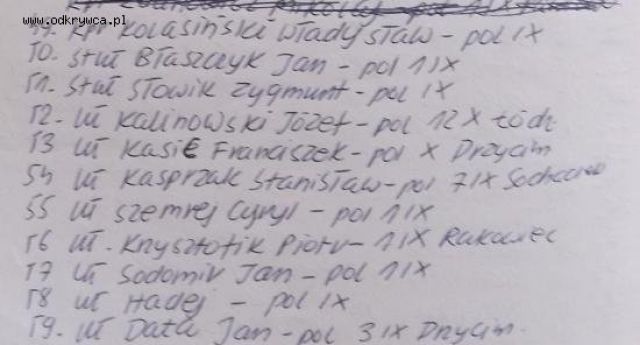 www.odkrywca.pl
49. kpr Kolasiński Władysław - pol IX
50. stuł Błaszczyk Jan - pol 1 IX
51. stuł Słowik Zygmunt - pol IX
52. uł Kalinowski Józef - pol 12 X Łódź
53 uł Kasie Franciszek - pol X Drzycim
54 uł Kasprzak Stanisław - pol 7 IX
55 uł Szemrej Cyryl - pol 1 IX
56 uł. Knysztofik Piotr - 1 IX Rakowiec
57 uł Sodomir Jan - pol 1 IX
58 uł Hadej - pol IX
59. uł Data Jan - pol 3 IX Drzycim.